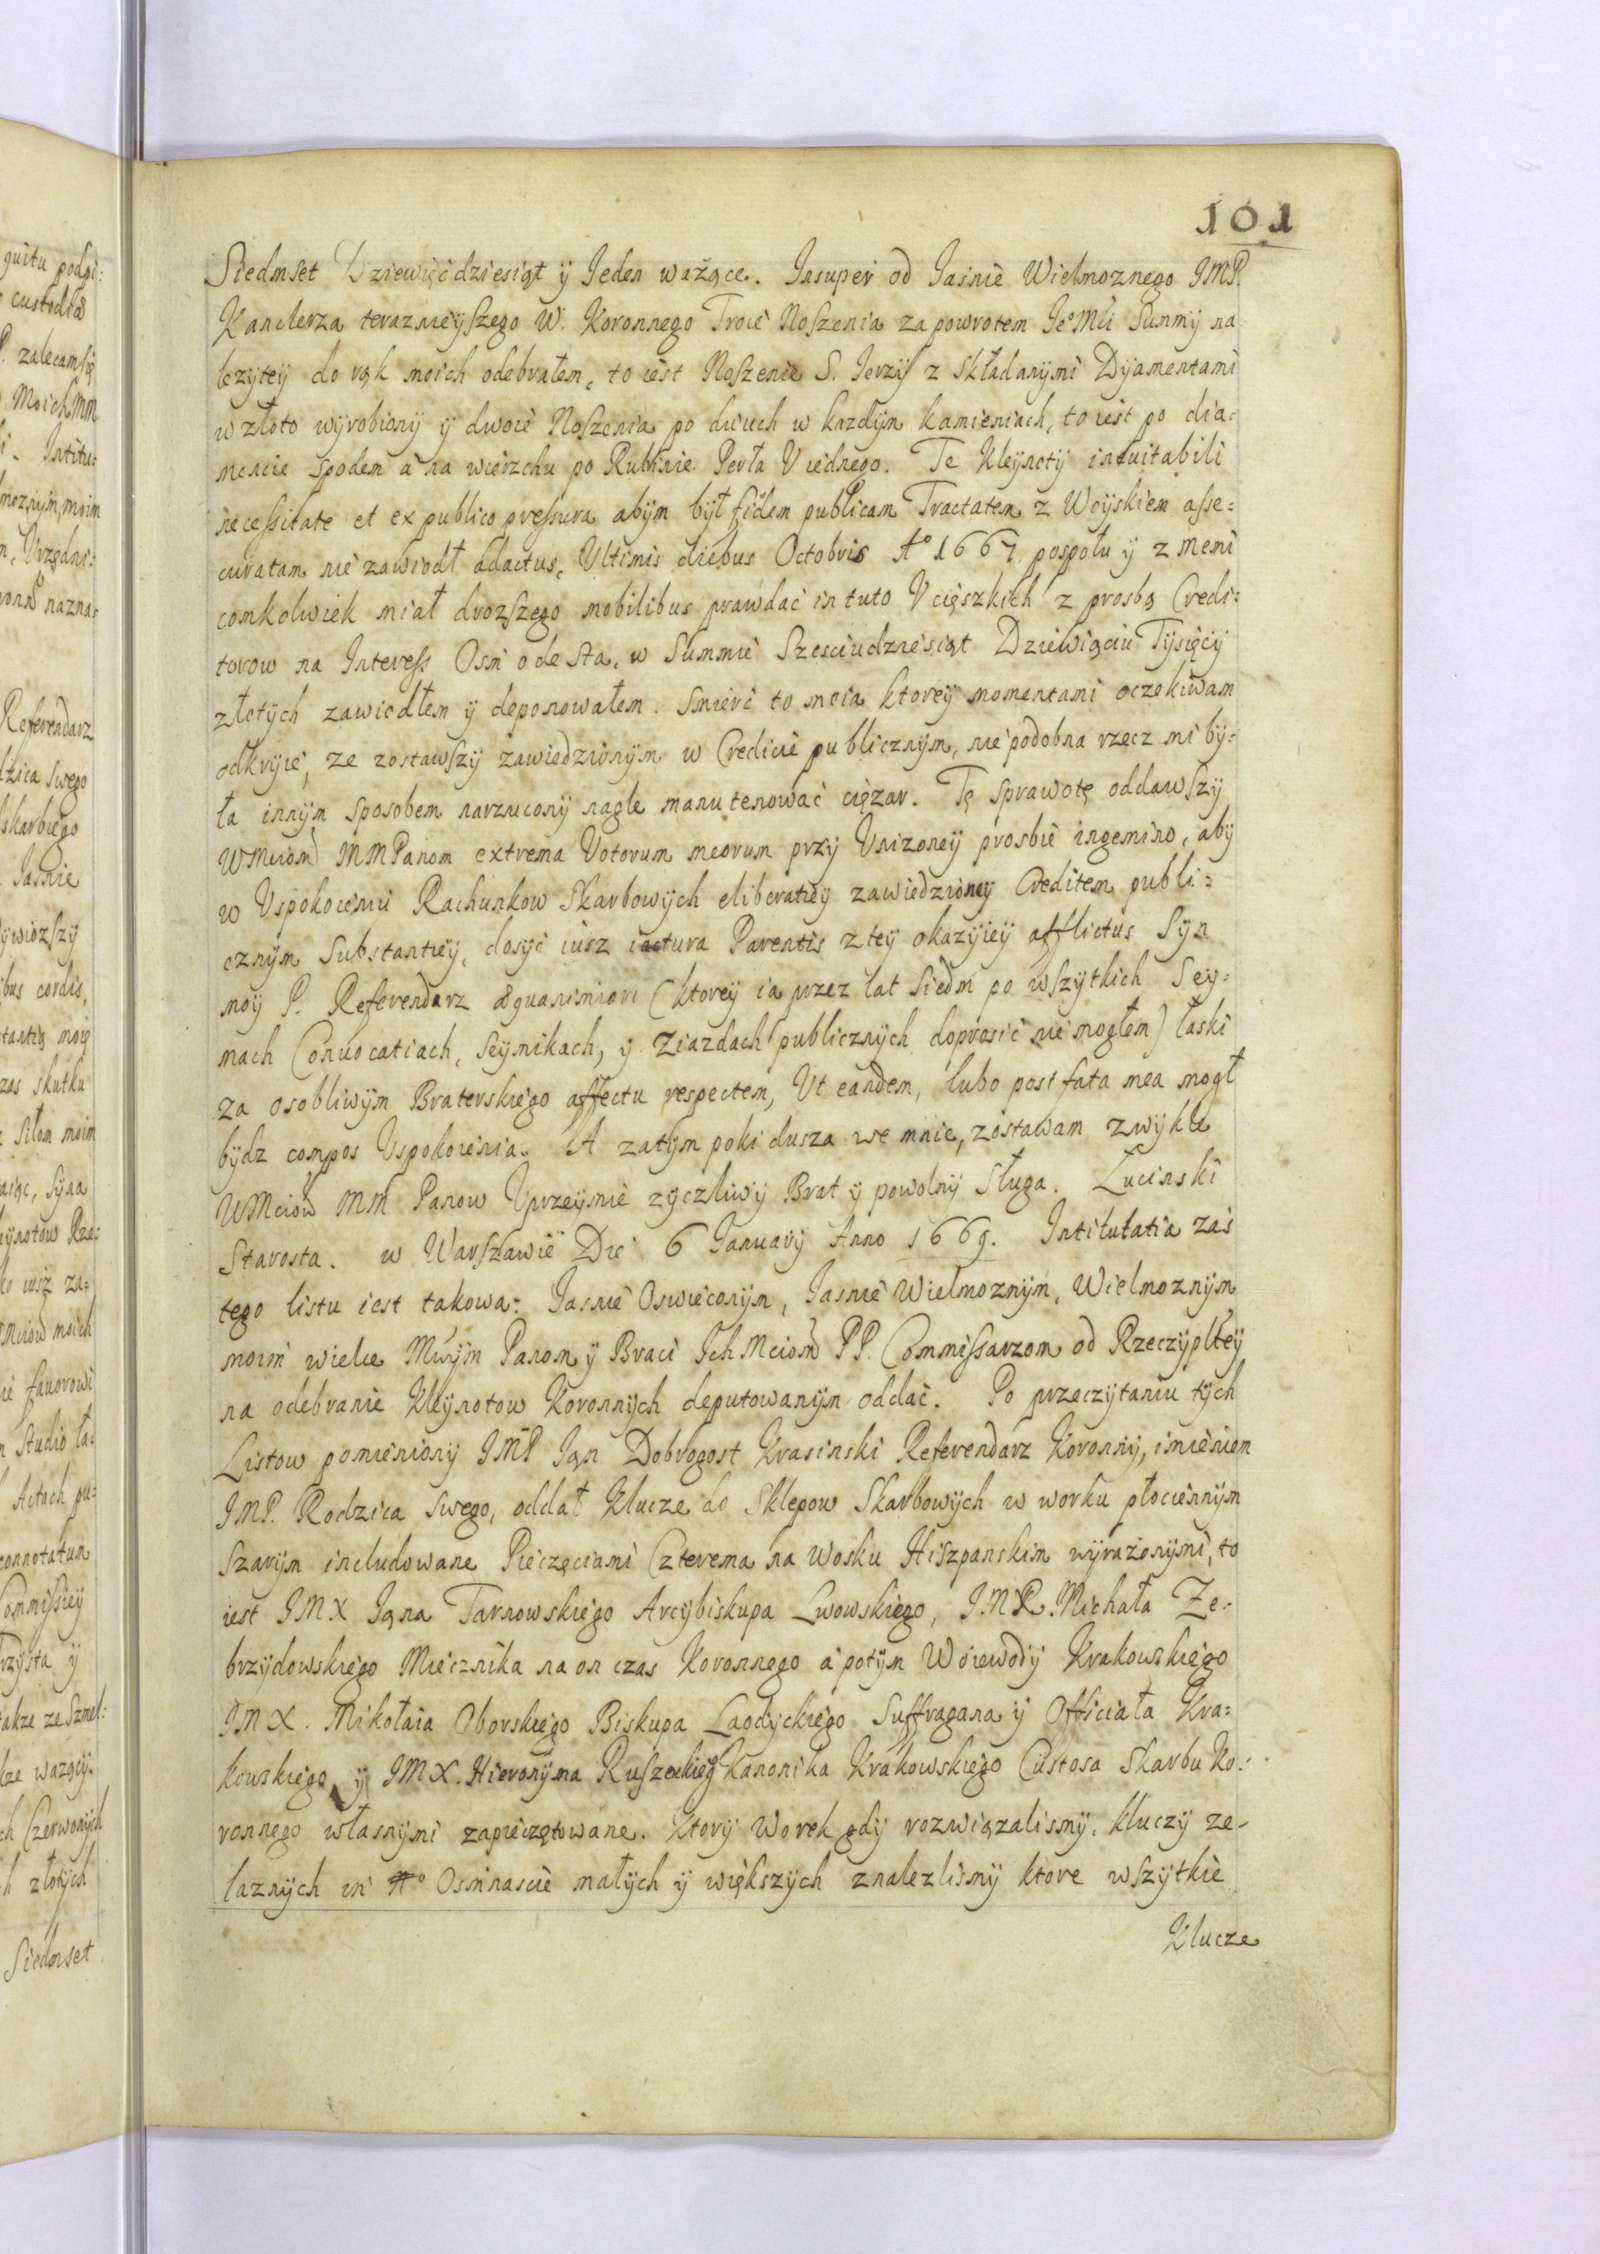 101
Siedmset Dziewięćdziesiąt ÿ Ieden ważące. Insuper od Iasnie Wielmoznego IMP.
Kanclerza terazneÿszego W. Koronnego Troie Noszenia za powrotem Ie°Mći Summÿ na
lezÿteÿ do rąk moich odebrałem, to iest Noszenie S. Ierzÿ z składanÿmi Dÿamentami
w złoto wÿrobionÿ ÿ dwoie Noszenia po dwuch w kazdÿm kamieniach, to iest po dia-
mencie spodem a na wierzchu po Rubinie Perła V iednego. Te Kleÿnotÿ ineuitabili
necessitate et ex publico pressura abÿm bÿł fidem publicam Tractatem z Woÿskiem asse-
curatam nie zawiodł adactus, Vltimis diebus Octobris A° 1667 pospołu ÿ z memi
comkolwiek miał drozszego mobilibus prawdac in tuto V cięszkich z prosbą Credi-
torow na Interess Osm ode sta, w Summie Szesciudziesiąt Dziewięciu Tÿsięcÿ
złotÿch zawiodłem ÿ deponowałem. Smierć to moia ktoreÿ momentami oczekiwam
odkrÿie, ze zostawszÿ zawiedzionÿm w Credicie publicznÿm, nie podobna rzecz mi bÿ-
ła innÿm sposobem narzuconÿ nagle manutenować cięzar. Tę sprawotę oddawszÿ
WMciom MMPanom extrema Votorum meorum przÿ Vnizoneÿ prosbie ingemino, abÿ
w Vspokoieniu Rachunkow Skarbowÿch eliberatieÿ zawiedzioneÿ Creditem publi-
cznÿm Substantieÿ, dosÿc iusz iactura Parentis z teÿ okazÿieÿ afflictus Sÿn
moÿ P. Referendarz æquanimiori (ktoreÿ ia przez lat siedm po wszÿtkich Seÿ-
mach Conuocatiach, Seÿmikach, ÿ Ziazdach publicznÿch doprosić nie mogłem) łaski
za osobliwÿm Braterskiego affectu respectem, Vt eandem, lubo post fata mea mogł
bÿdz compos Vspokoienia. A zatÿm poki dusza we mnie, zostawam zwÿkle
WMciow MM Panow Vprzeÿmie zÿczliwÿ Brat ÿ powolnÿ Sługa. Łucinski
Starosta. w Warszawie Die 6 Ianuarÿ Anno 1669. Intitulatia zas
tego listu iest takowa: Iasnie Oswieconÿm, Iasnie Wielmoznÿm, Wielmoznÿm
moim wielce Mwÿm Panom ÿ Braci Ich Mciom PP. Commissarzom od Rzeczÿpltey
na odebranie Kleÿnotow Koronnÿch deputowanÿm oddać. Po przeczÿtaniu tÿch
Listow pomienionÿ IMP Ian Dobrogost Krasinski Referendarz Koronnÿ, imieniem
IMP. Rodzica swego, oddał Klucze do Sklepow Skarbowÿch w worku płociennÿm
szarÿm includowane Pieczęciami Czterema na Wosku Hiszpanskim wÿrażonÿmi, to
iest IMX Iana Tarnowskiego Arcÿbiskupa Lwowskiego, IMP. Michała Ze-
brzÿdowskiego Miecznika na on czas Koronnego a potÿm Woiewodÿ Krakowskiego
IMX. Mikołaia Oborskiego Biskupa Laodÿckiego Suffragana ÿ Officiała Kra-
kowskiego ÿ IMX. Hieronÿma Ruszeckieg Kanonika Krakowskiego Custosa Skarbu Ko-
ronnego własnÿmi zapieczętowane. Ktorÿ worek gdÿ rozwiązalismÿ, kluczÿ ze-
laznÿch in N° Osmnascie małÿch ÿ większÿch znalezlismÿ ktore wszÿtkie
Klucze